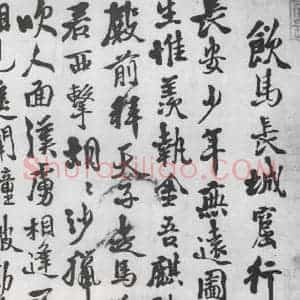 飲馬長城窟行
長安少年無遠圖
生惟羨執金吾麒
殿前拜天子走馬
君西擊胡〻沙獵
吹人面漢虜相逢
相見
Shufaziliao.com